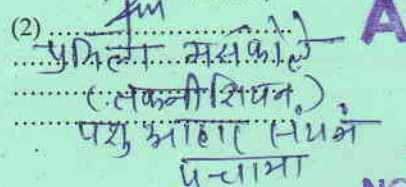 (2)
प्रमिला मर्सकोले
(तकनीशियन)
पशु आहार संयंत्र
पचामा
A